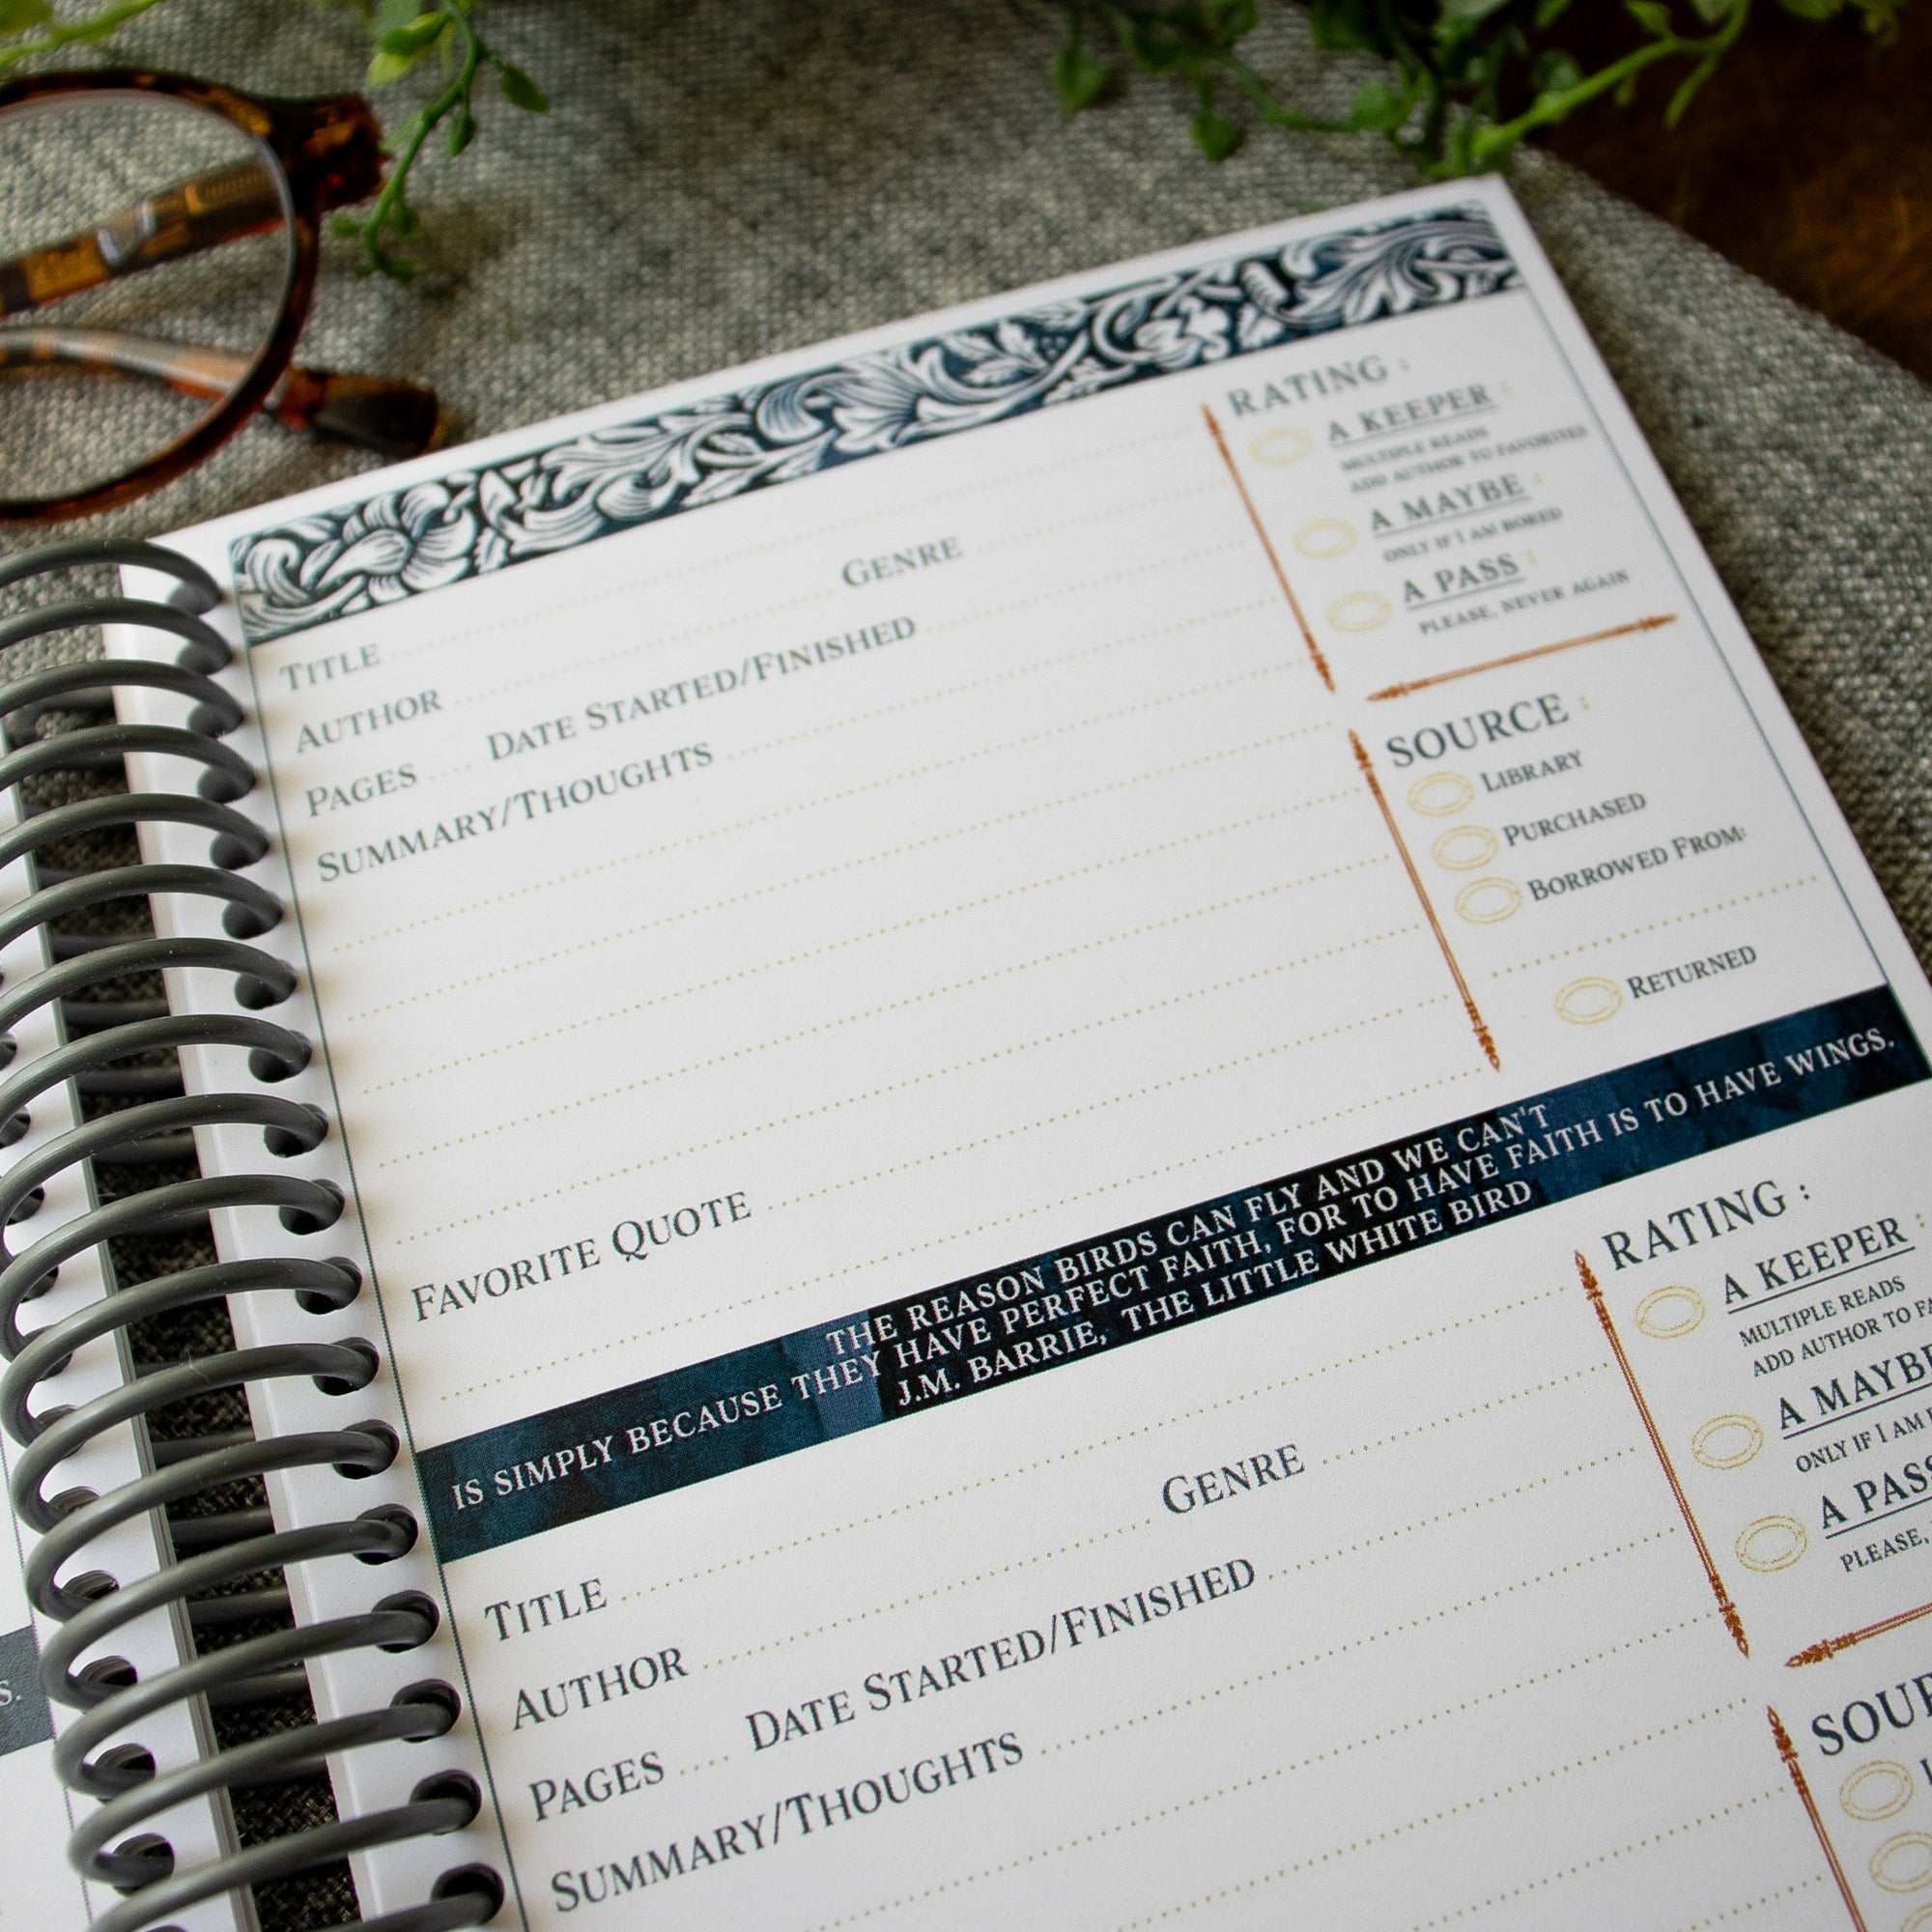 RATING :
A KEEPER :
MULTIPLE READS
ADD AUTHOR TO FAVORITES
A MAYBE :
ONLY IF I AM BORED
A PASS :
PLEASE, NEVER AGAIN
TITLE
AUTHOR GENRE
PAGES DATE STARTED/FINISHED
SUMMARY/THOUGHTS
SOURCE :
LIBRARY
PURCHASED
BORROWED FROM:
RETURNED
FAVORITE QUOTE
THE REASON BIRDS CAN FLY AND WE CAN'T
IS SIMPLY BECAUSE THEY HAVE PERFECT FAITH, FOR TO HAVE FAITH IS TO HAVE WINGS.
J.M. BARRIE, THE LITTLE WHITE BIRD
RATING :
A KEEPER :
MULTIPLE READS
ADD AUTHOR TO FA
A MAYBE
ONLY IF I AM
A PASS
PLEASE,
TITLE
AUTHOR GENRE
PAGES DATE STARTED/FINISHED
SUMMARY/THOUGHTS
SOUR
S.